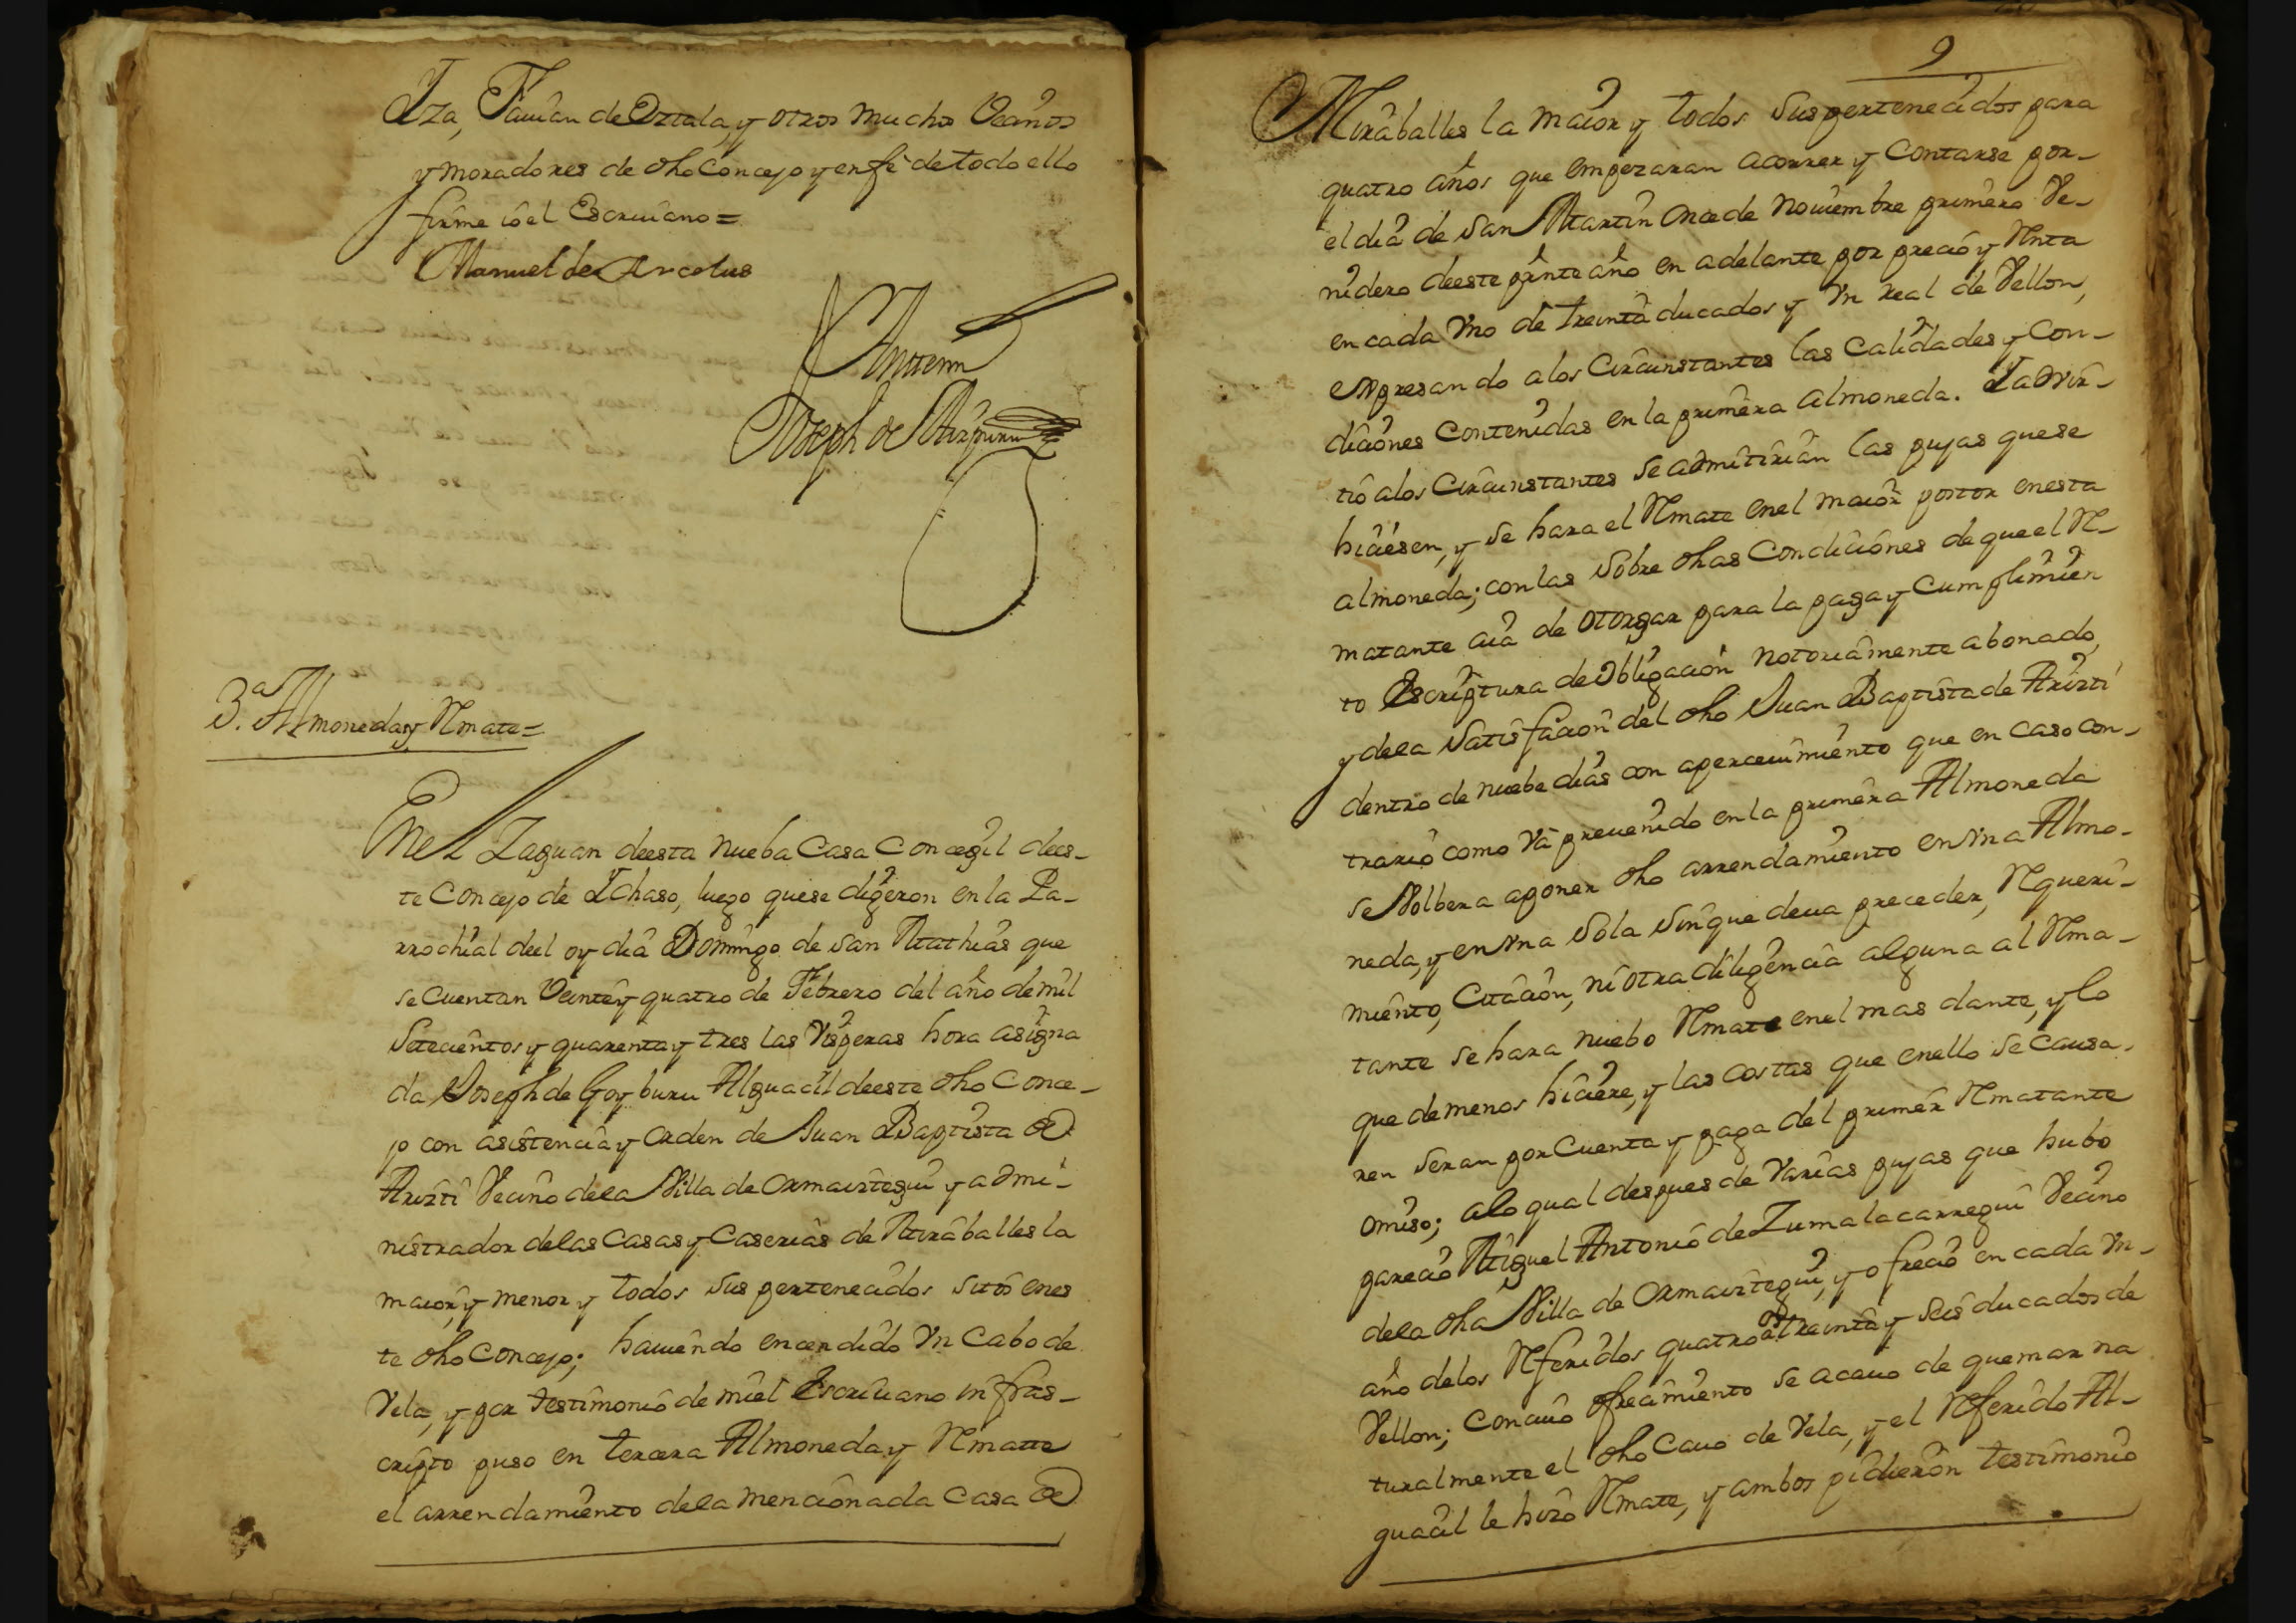 Yza, Favian de Oztala, y otros muchos Vecinos
y moradores de dho Concejo y en fè de todo ello
firme io el Escriuano =
Manuel de Arcelus
Ante mi
Joseph de Aizpuru
3.ª Almoneda y Rmate =
En el Zaguan de esta nueba Casa Concegil de es-
te Concejo de Ychaso, luego que se digeron en la Pa-
rrochial de el oy dia Domingo de San Mathias que
se cuentan Veinte y quatro de Febrero del año de mil
Setecientos y quarenta y tres las Visperas hora asigna
da Joseph de Goyburu Alguacil de este dho Conce-
jo con asistencia y orden de Juan Baptista de
Arizti Vecino de la Villa de Ormaiztegui y admi-
nistrador de las Casas y Caserias de Miraballes la
maior, y menor y todos sus pertenecidos sitos en es
te dho Concejo; hauiendo encendido Vn Cabo de
Vela, y por testimonio de mi el Escriuano infras-
cripto puso en tercera Almoneda y Rmatte
el arrendamiento de la mencionada Casa de
9
Miraballes la maior y todos sus pertenecidos para
quatro años que empezaran a correr y Contarse por-
el dia de San Martin once de Nouiembre primero Ve-
nidero de este pnte año en adelante por precio y Rnta
en cada Vno de treinta ducados y Vn real de Vellon,
expresando a los Circunstantes las Calidades y Con-
diciones Contenidas en la primera almoneda. Y advir-
tio a los Circunstantes se admitirian las pujas que se
hiciesen, y se hara el Rmate en el maior postor en esta
almoneda; con las sobre dhas Condiciones de que el R-
matante aia de otorgar para la paga y Cumplimien
to Escriptura de Obligacion notoriamente abonado,
y de la Satisfacion del dho Juan Baptista de Arizti
dentro de nuebe dias con aperceuimiento que en caso con-
trario como Va preuenido en la primera Almoneda
se Volbera a poner dho arrendamiento en Vna Almo-
neda, y en Vna Sola sin que deua preceder, Rqueri-
miento, Citacion, ni otra diligencia alguna al Rma-
tante se hara nuebo Rmate en el mas dante, y lo
que de menos hiciere, y las costas que en ello se Causa-
ren seran por Cuenta y paga del primer Rmatante
omiso; a lo qual despues de Varias pujas que hubo
parecio Miguel Antonio de Zumalacarregui Vecino
de la dha Villa de Ormaiztegui, y ofrecio en cada Vn-
año de los Rferidos quatro as treinta y seis ducados de
Vellon; Con cuio ofrecimiento se acauo de quemar na
turalmente el dho Cauo de Vela, y el Rferido Al-
guacil le hizo Rmate, y ambos pidieron testimonio